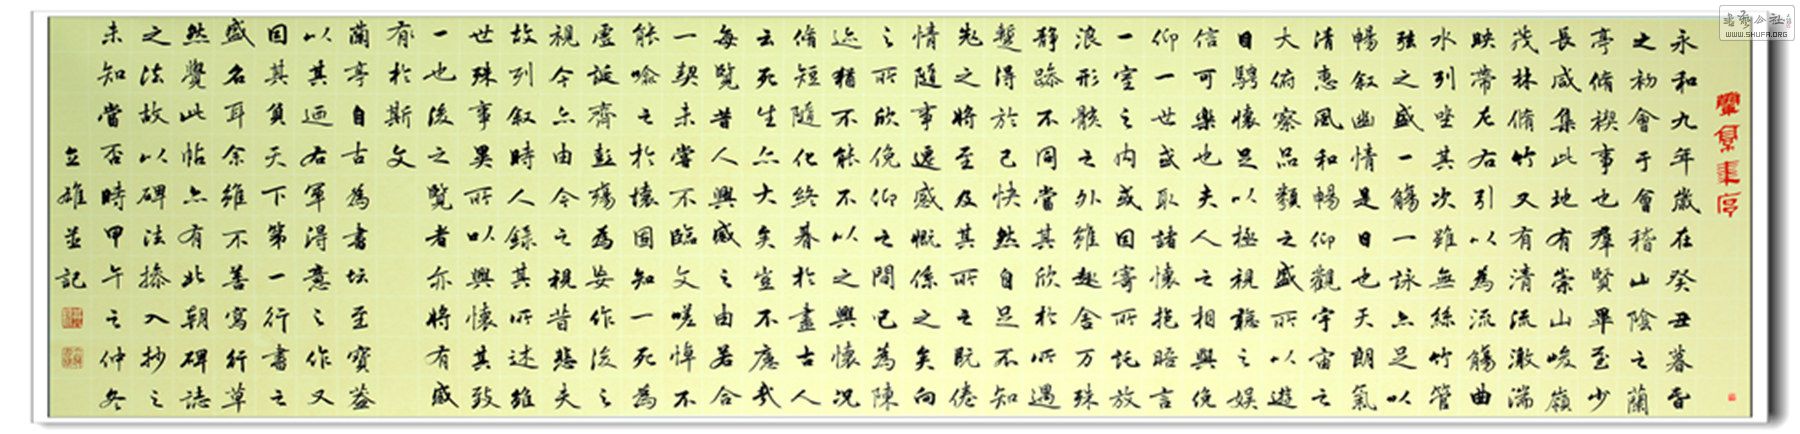 蘭亭集序
永和九年歲在癸丑暮春
之初會于會稽山陰之蘭
亭脩禊事也羣賢畢至少
長咸集此地有崇山峻嶺
茂林脩竹又有清流激湍
映帶左右引以為流觴曲
水列坐其次雖無絲竹管
弦之盛一觴一詠亦足以
暢敘幽情是日也天朗氣
清惠風和暢仰觀宇宙之
大俯察品類之盛所以遊
目騁懷足以極視聽之娛
信可樂也夫人之相與俛
仰一世或取諸懷抱晤言
一室之內或因寄所託放
浪形骸之外雖趣舍万殊
靜躁不同當其欣於所遇
蹔得於己快然自足不知
老之將至及其所之既倦
情隨事遷感慨係之矣向
之所欣俛仰之間已為陳
迹猶不能不以之興懷況
脩短隨化終期於盡古人
云死生亦大矣豈不痛哉
每覽昔人興感之由若合
一契未嘗不臨文嗟悼不
能喻之於懷固知一死為
虛誕齊彭殤為妄作後之
視今亦由今之視昔悲夫
故列敘時人錄其所述雖
世殊事異所以興懷其致
一也後之覽者亦將有感
有於斯文
蘭亭自古為書坛至寶蓋
以其迺右軍得意之作又
因其負天下第一行書之
盛名耳余雖不善寫行草
然覺此帖亦有北朝碑誌
之法故以碑法摻入抄之
未知當否時甲午之仲冬
立雄並記
书法公社
WWW.SHUFA.ORG